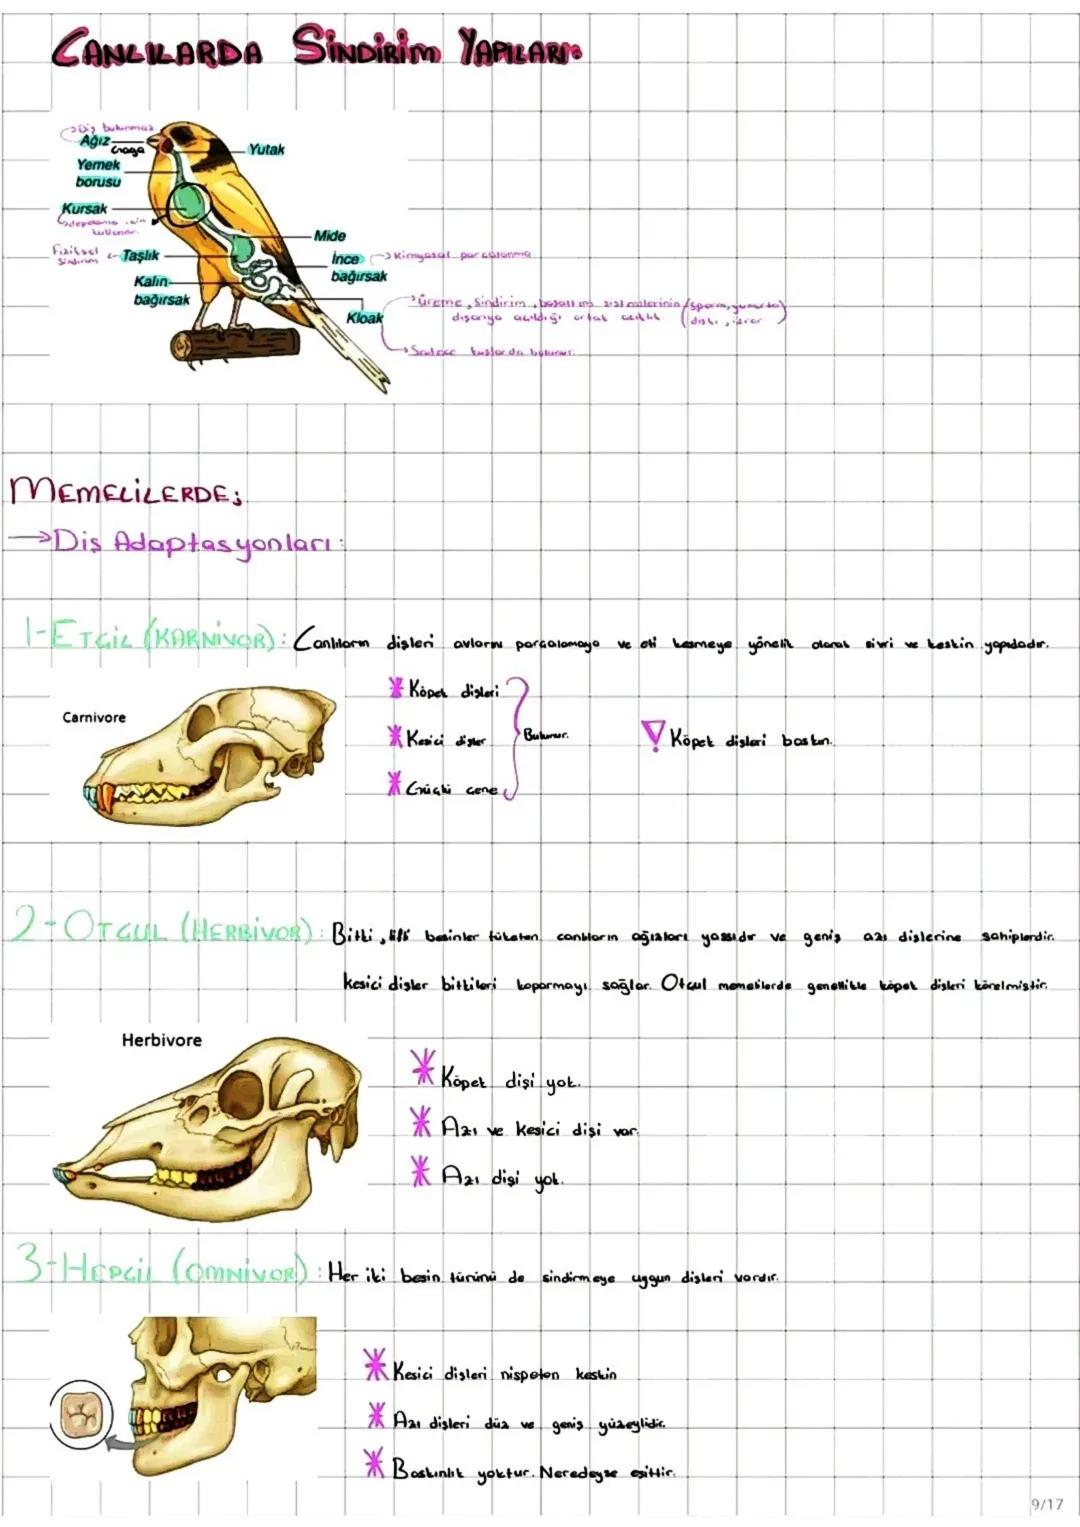 CANLILARDA SİNDİRİM YAPILARI:
→Diş bulunmaz
Ağız
Gaga
Yutak
Yemek
borusu
Kursak
→depolama için
kullanılır.
Mide
Fiziksel
Sindirim ← Taşlık
İnce
bağırsak
→Kimyasal parçalanma
Kalın
bağırsak
Kloak
→üreme, sindirim, boşaltım sistemlerinin (sperm, yumurta)
dışarıya açıldığı ortak açıklık (dışkı, idrar
→Sadece kuşlarda bulunur.
MEMELİLERDE;
→Diş Adaptasyonları:
1-ETÇİL (KARNİVOR): Canlıların dişleri avlarını parçalamaya ve eti kesmeye yönelik olarak sivri ve keskin yapıdadır.
Carnivore
* Köpek dişleri
* Kesici dişler
* Güçlü çene
Bulunur.
Köpek dişleri baskın.
2-OTÇUL (HERBİVOR): Bitki, lifli besinler tüketen canlıların ağızları yassıdır ve geniş azı dişlerine sahiplerdir.
Kesici dişler bitkileri koparmayı sağlar. Otçul memelilerde genellikle köpek dişleri körelmiştir.
Herbivore
* Köpek dişi yok.
* Azı ve kesici dişi var.
* Azı dişi yok.
3-HEPÇİL (OMNİVOR): Her iki besin türünü de sindirmeye uygun dişleri vardır.
* Kesici dişleri nispeten keskin
* Azı dişleri düz ve geniş yüzeylidir.
* Baskınlık yoktur. Neredeyse eşittir.
9/17